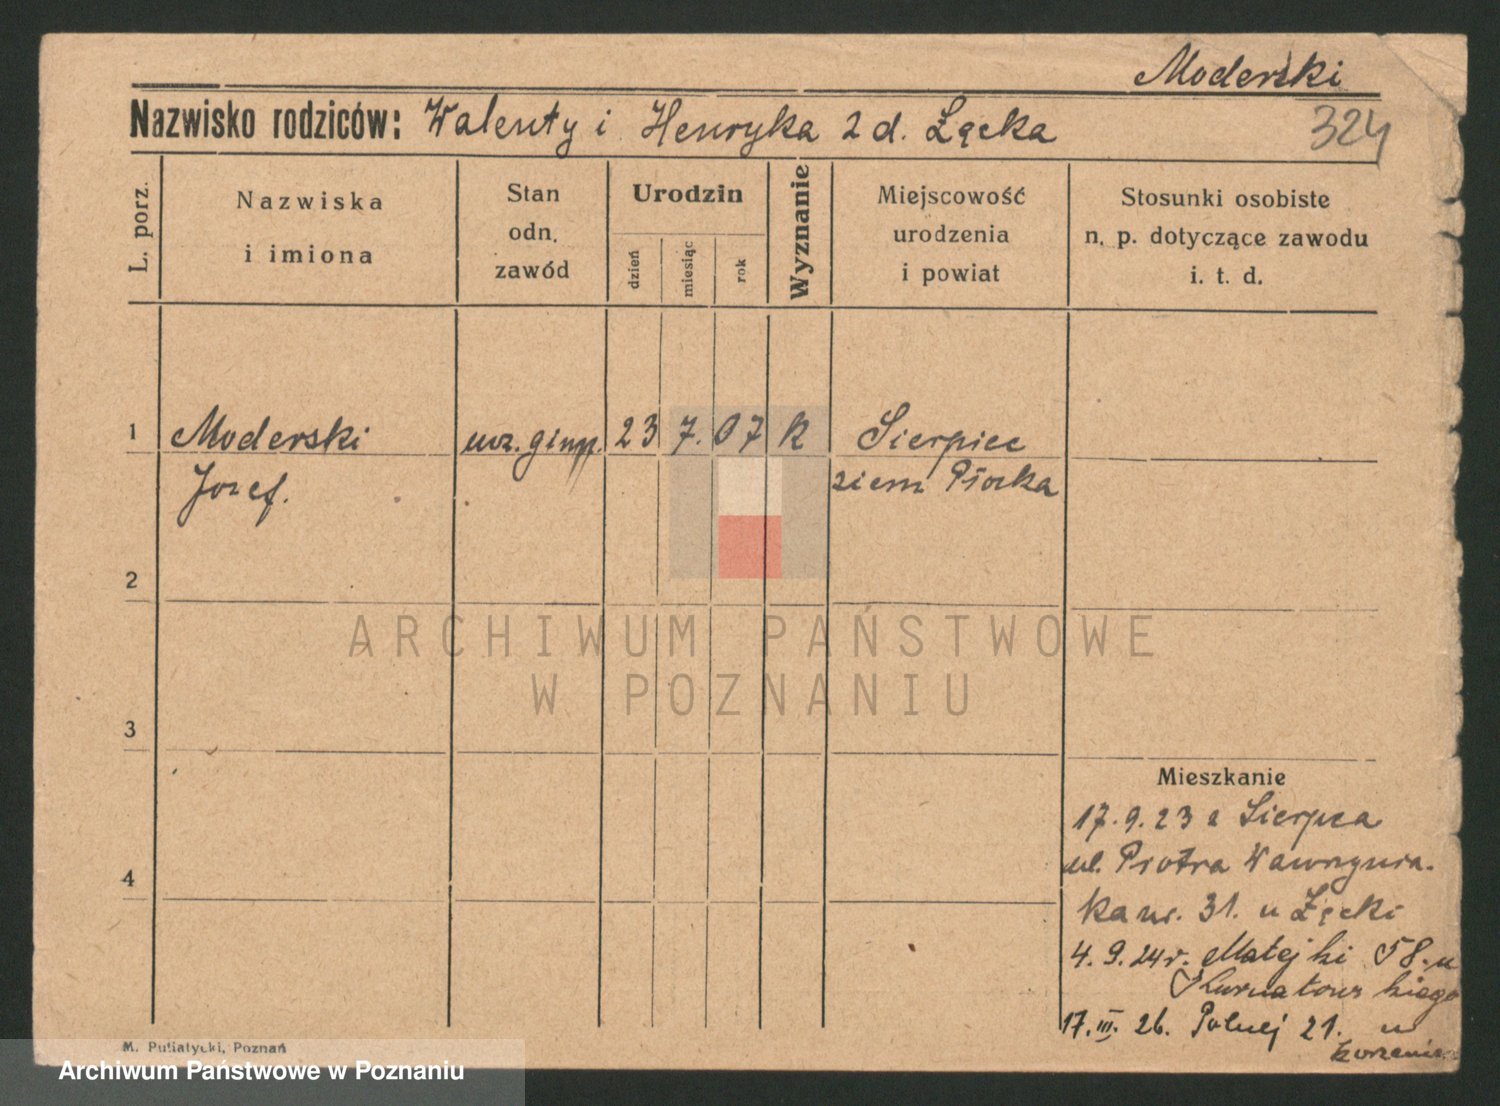 Moderski
Nazwisko rodziców: Walenty i Henryka z d. Łęcka
324
L. porz.
Nazwiska
i imiona
Stan
odn.
zawód
Urodzin
dzień
miesiąc
rok
Wyznanie
Miejscowość
urodzenia
i powiat
Stosunki osobiste
n. p. dotyczące zawodu
i. t. d.
1
Moderski
Józef.
ucz. gimn.
23
7.
07
K
Sierpiec
ziem Płocka
2
ARCHIWUM PAŃSTWOWE
W POZNANIU
3
4
Mieszkanie
17.9.23 z Sierpca
ul. Piotra Wawrzynia-
ka nr. 31. u Łęcki
4.9.24r. Matejki 58. u
Kurnatowskiego
17.III.26. Polnej 21. u
M. Putiatycki, Poznań
Archiwum Państwowe w Poznaniu